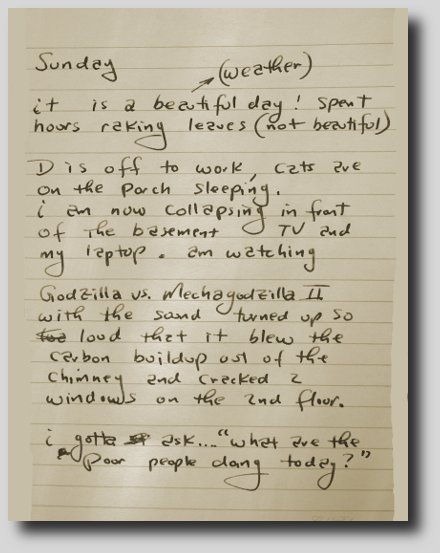 Sunday
(weather)
it is a beautiful day! spent
hours raking leaves (not beautiful)
D is off to work, cats are
on the porch sleeping.
i am now collapsing in front
of the basement TV and
my laptop. am watching
Godzilla vs. Mechagodzilla II
with the sand turned up so
too loud that it blew the
carbon buildup out of the
chimney and cracked 2
windows on the 2nd floor.
i gotta ask..."what are the
poor people doing today?"